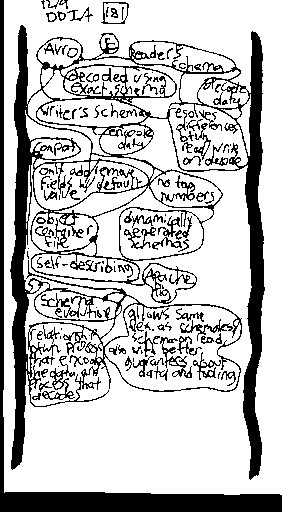 12/9
DDIA 181
AVRO
E
reader's schema
decoded using
exact schema
decode
data
writer's schema
encode
data
resolves
differences
btwn
read/write
on decode
compat
only add/remove
fields w/ default
value
no tag
numbers
object
container
file
dynamically
generated
schemas
self-describing
Apache
Pig
schema
evolution
relationship
btwn process
that encodes
the data, and
process that
decodes
allows same
flex. as schemaless/
schema-on-read,
also with better
guarantees about
data and tooling